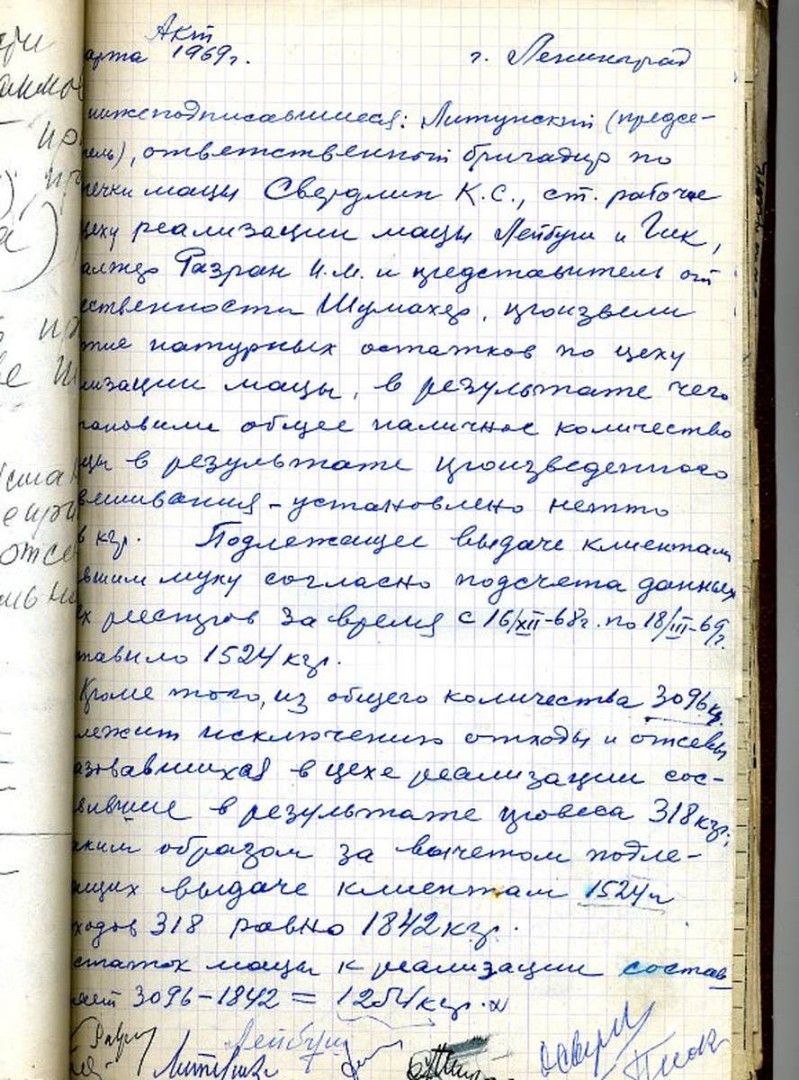 Акт
арта 1969г. г. Ленинград
нижеподписавшиеся: Литунский (предсе-
тель), ответственный бригадир по
печки мацы Свердлин К.С., ст. рабочие
цеху реализации мацы Лейбуш и Гик,
Фазран И.М. и представитель от
ественности Шумахер, произвели
тие натурных остатков по цеху
лизации мацы, в результате чего
тановили общее наличное количество
цы в результате произведенного
вешивания - установлено нетто
кгр. Подлежащее выдаче клиентам
вшим муку согласно подсчета данных
х реестров за время с 16/XII-68г. по 18/III-69г.
тавило 1524 кгр.
Кроме того, из общего количества 3096 кг.
лежит исключению отходы и отсевы
азовавшихся в цехе реализации сос-
вившие в результате провеса 318 кгр;
ким образом за вычетом подле-
ащих выдаче клиентам 1524 и
ходов 318 равно 1842 кгр.
статок мацы к реализации состав
яет 3096-1842 = 1254 кгр.
Лейбуш